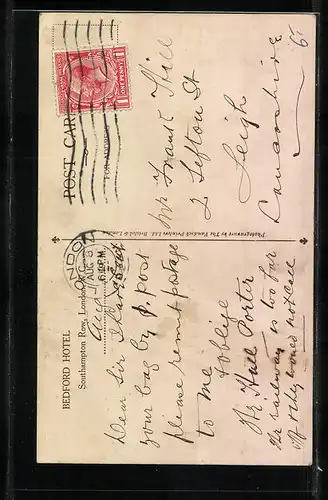 BEDFORD HOTEL
Southampton Row, London, W.C.
Aug
Dear Sir I have sent
your bag by P. post
please remit postage
to me
& oblige
Hall Porter
railway is too far
& they would not call
POST CARD
FOR ADDRESS
ONE PENNY
LONDON
6 PM
AUG 8
Photogravure by The Vandyck Printers Ltd., Bristol & London
Mr Frank Hill
2 Sefton St
Leigh
Lancashire
6